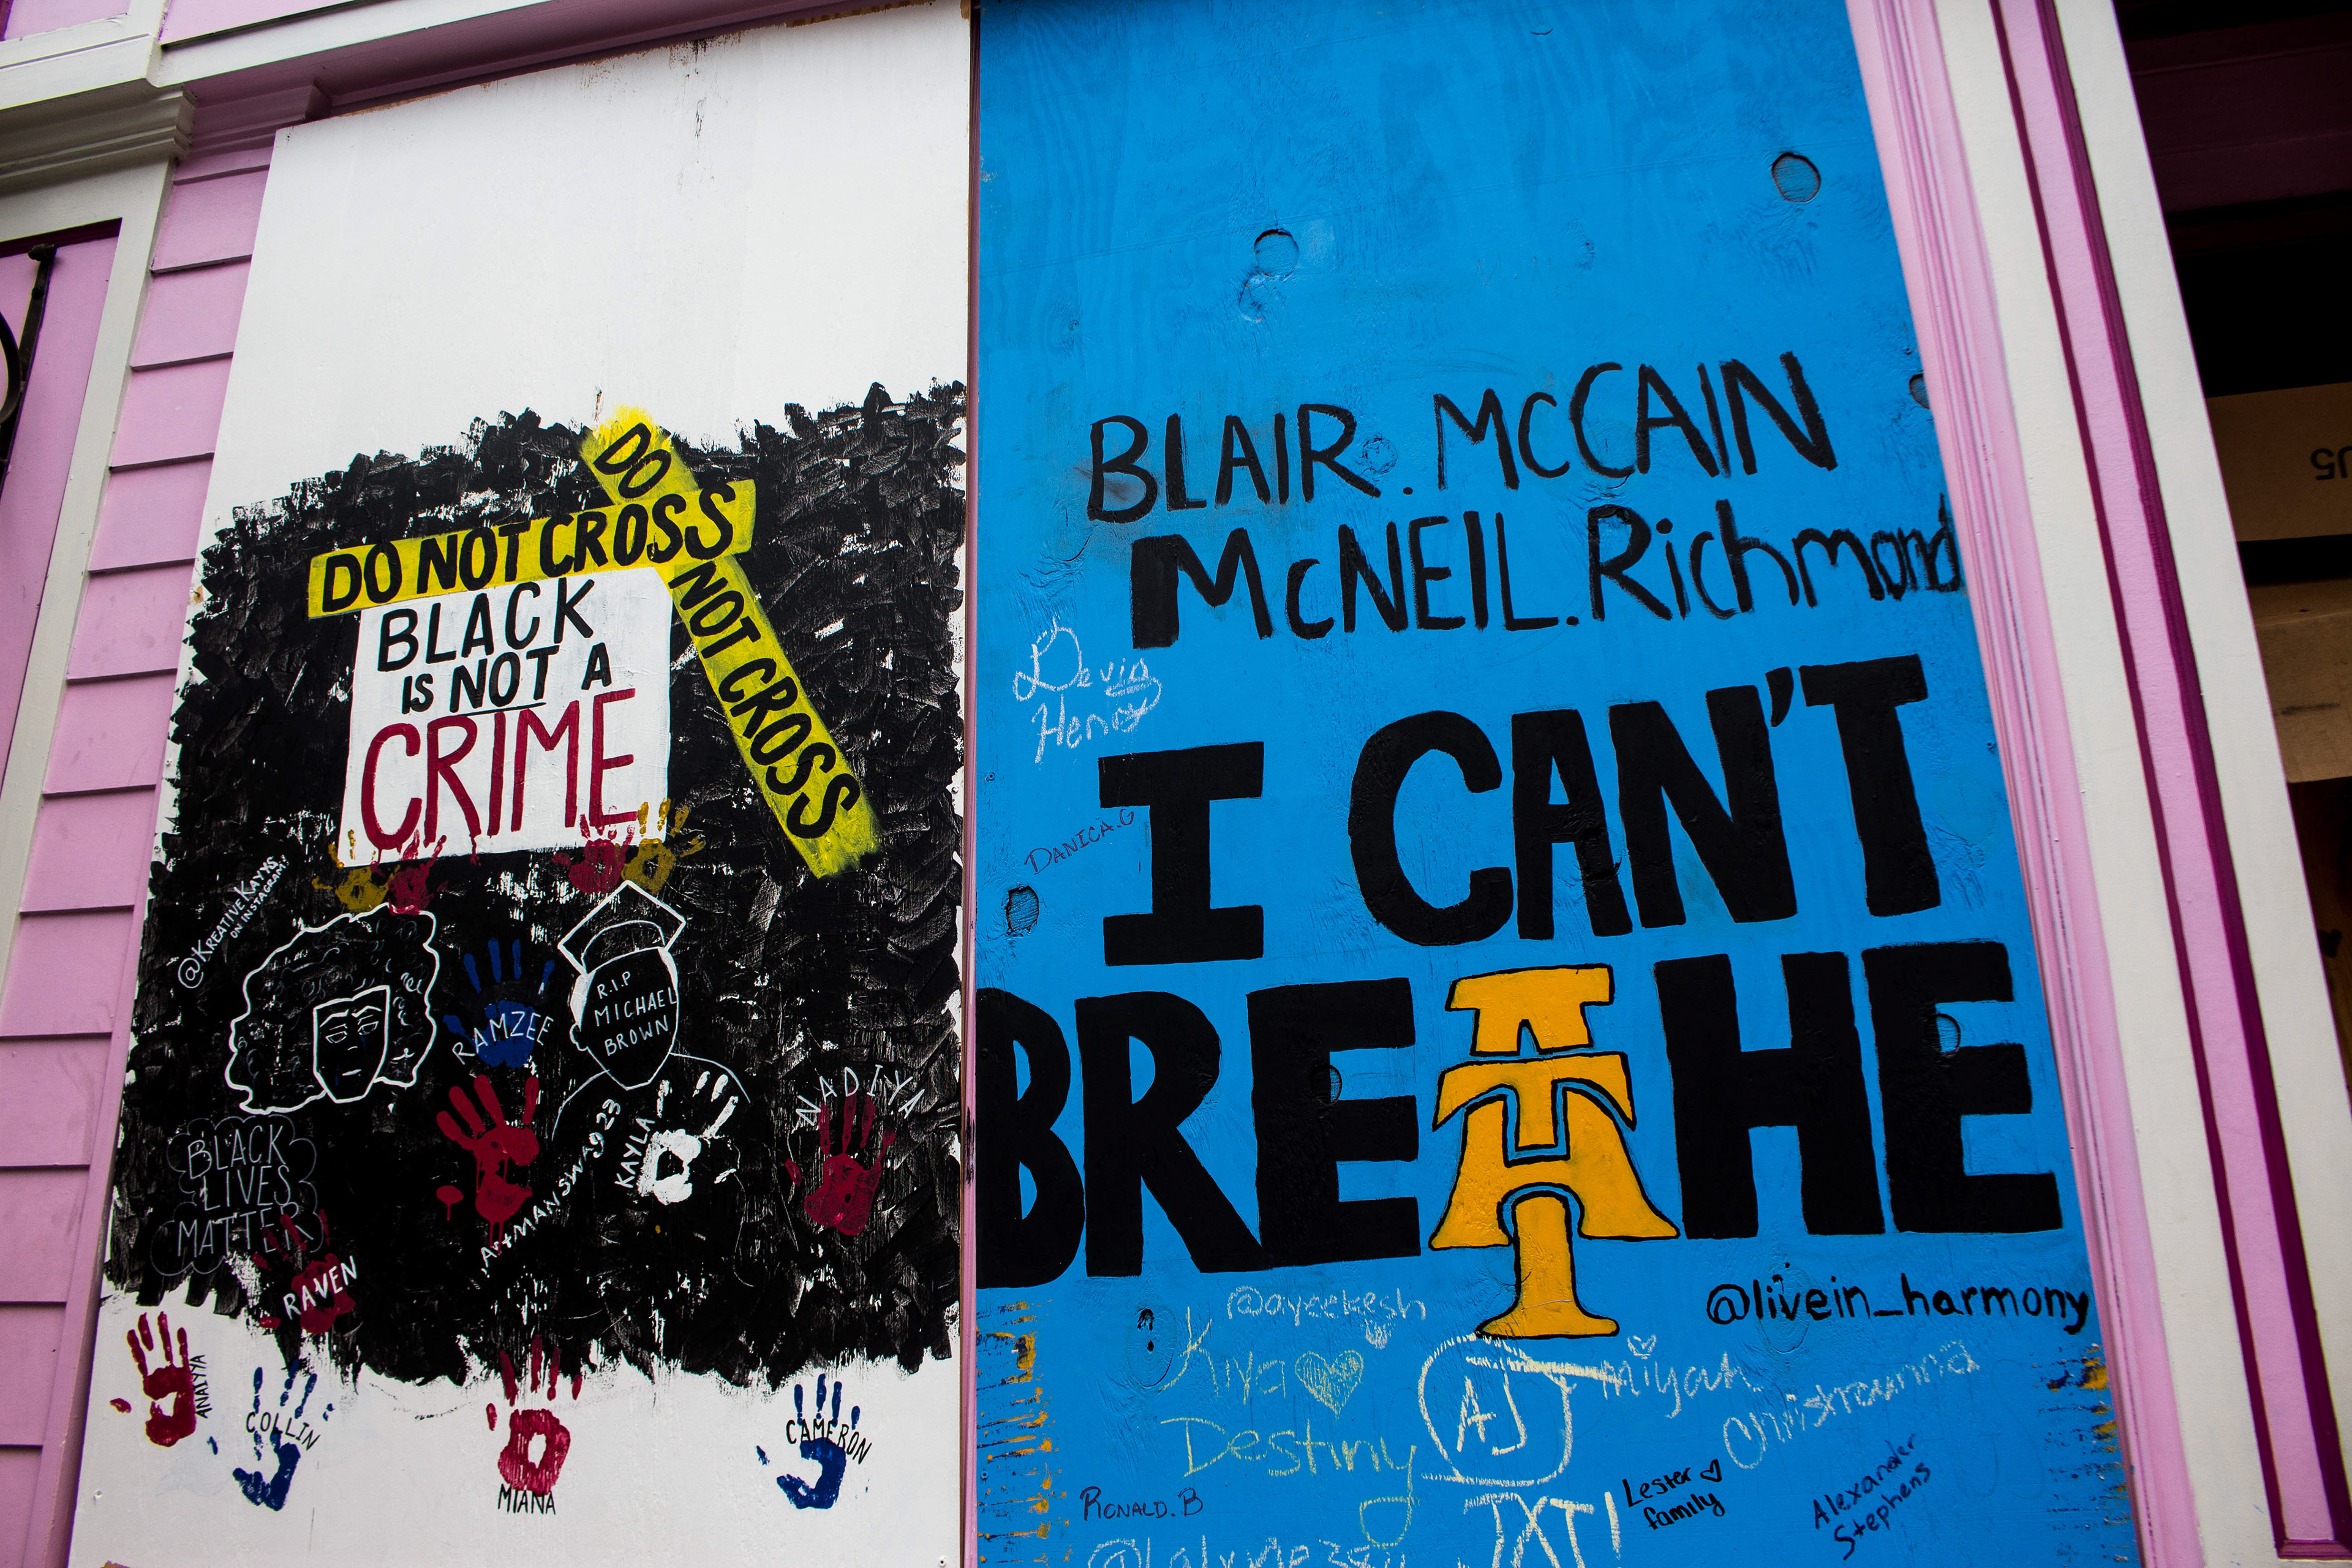 DO NOT CROSS
DO NOT CROSS
BLACK
IS NOT A
CRIME
@KREATIVEKAYYS
ON INSTAGRAM!
RAMZEE
R.I.P
MICHAEL
BROWN
NADIYA
KAYLA
BLACK
LIVES
MATTER
RAVEN
ANAIYA
COLLIN
MIANA
CAMERON
BLAIR. MCCAIN
MCNEIL. Richmond
Devin
Henry
I CAN'T
DANICA.G
BREATHE
@livein_harmony
@ayeekesh
Kiya
miyah
AJ
Destiny
Lester
family
Alexander
Stephens
RONALD.B